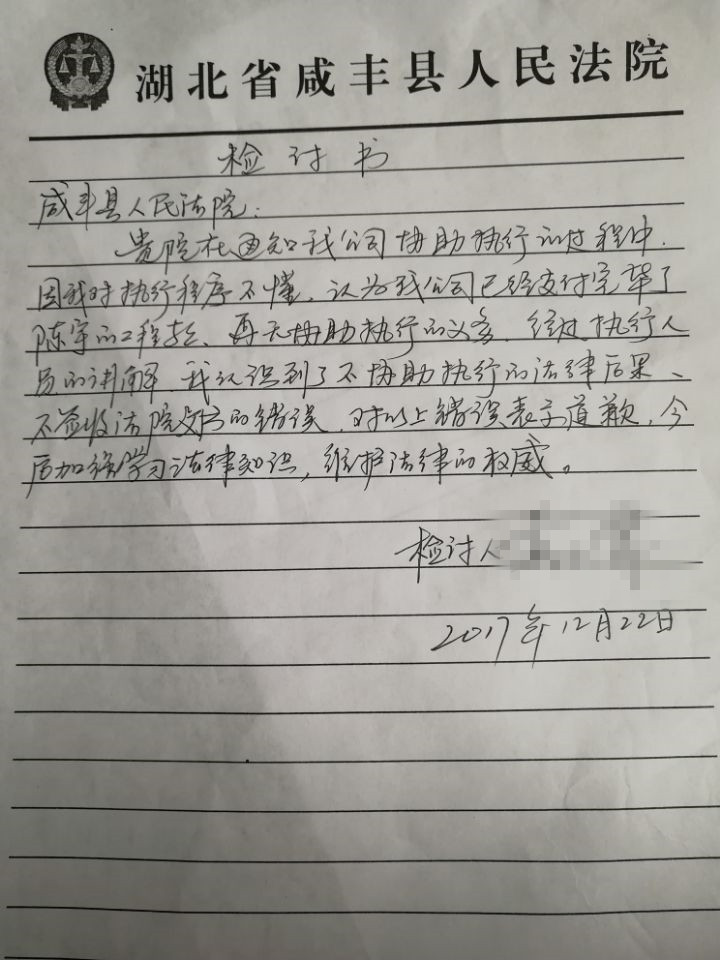 湖北省咸丰县人民法院
检讨书
咸丰县人民法院:
贵院在通知我公司协助执行的过程中.
因我对执行程序不懂、认为我公司已经支付完毕了
陈宇的工程款、再无协助执行的义务. 经过执行人
员的讲解 我认识到了不协助执行的法律后果、
不签收法院文书的错误. 对以上错误表示道歉. 今
后加强学习法律知识, 维护法律的权威。
检讨人
2017年12月22日